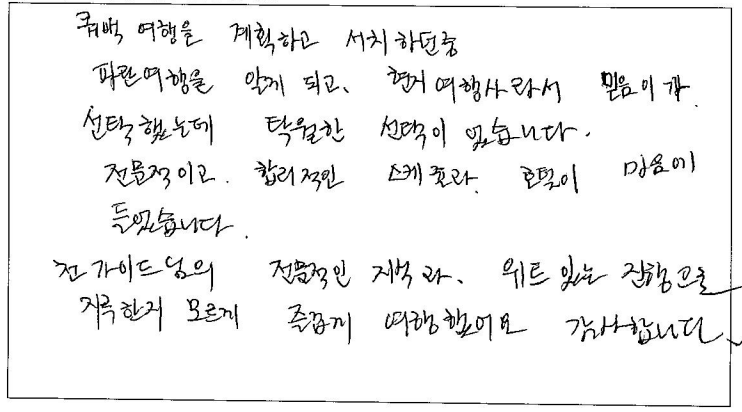 퀘백 여행을 계획하고 서치하던중
파란여행을 알게 되고, 현지여행사라서 믿음이가
선택했는데 탁월한 선택이 었습니다.
전문적이고. 합리적인 스케쥴과, 호텔이 마음에
들었습니다.
천가이드님의 전문적인 지식과, 위트있는 진행으로
지루한지 모르게 즐겁게 여행했어요 감사합니다